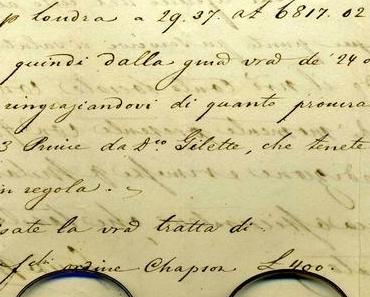 p Londra a 29.37. at 6817.02
quindi dalla gmd vrd de' 24 o
ringraziandovi di quanto procura
3 Prime da Dco Gilette, che tenete
in regola.
sate la vrd tratta di
ordine Chapson £400.